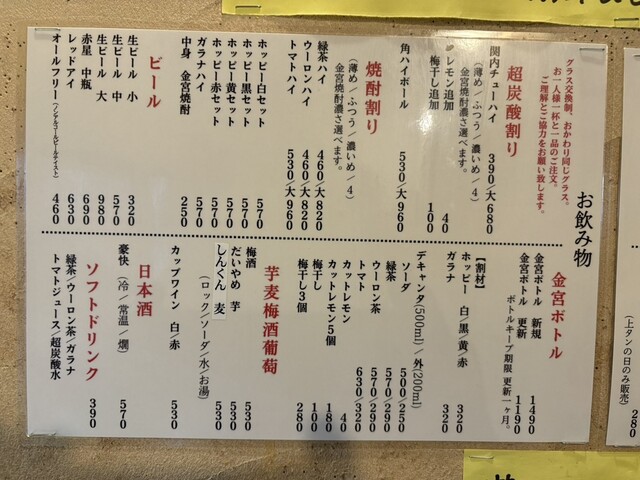 お飲み物
グラス交換制、おかわり同じグラス。
お一人様一杯と一品のご注文。
ご理解とご協力をお願い致します。
超炭酸割り
関内チューハイ 390/大680
(薄め/ふつう/濃いめ/4)
金宮焼酎濃さ選べます。
レモン追加 40
梅干し追加 100
角ハイボール 530/大960
焼酎割り
(薄め/ふつう/濃いめ/4)
金宮焼酎濃さ選べます。
緑茶ハイ 460/大820
ウーロンハイ 460/大820
トマトハイ 530/大960
ホッピー白セット 570
ホッピー黒セット 570
ホッピー黄セット 570
ホッピー赤セット 570
ガラナハイ 570
中身 金宮焼酎 250
ビール
生ビール 小 320
生ビール 中 570
生ビール 大 980
赤星 中瓶 690
レッドアイ 630
オールフリー(ノンアルコールビールテイスト) 460
金宮ボトル
金宮ボトル 新規 1490
金宮ボトル 更新 1190
ボトルキープ期限 更新一ヶ月。
【割材】
ホッピー 白/黒/黄/赤 320
ガラナ 320
デキャンタ(500ml)/外(200ml)
ソーダ 500/250
緑茶 570/290
ウーロン茶 570/290
トマト 630/320
カットレモン 40
カットレモン5個 180
梅干し 100
梅干し3個 280
芋麦梅酒葡萄
梅酒 530
だいやめ 芋 530
しんくん 麦 530
(ロック/ソーダ/水/お湯)
カップワイン 白/赤 530
日本酒
豪快 (冷/常温/燗) 570
ソフトドリンク
緑茶/ウーロン茶/ガラナ 390
トマトジュース/超炭酸水
(上タンの日のみ販売)
280